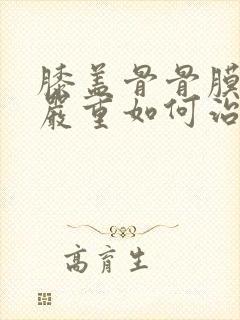 膝盖骨骨膜
严重如何治
高育生